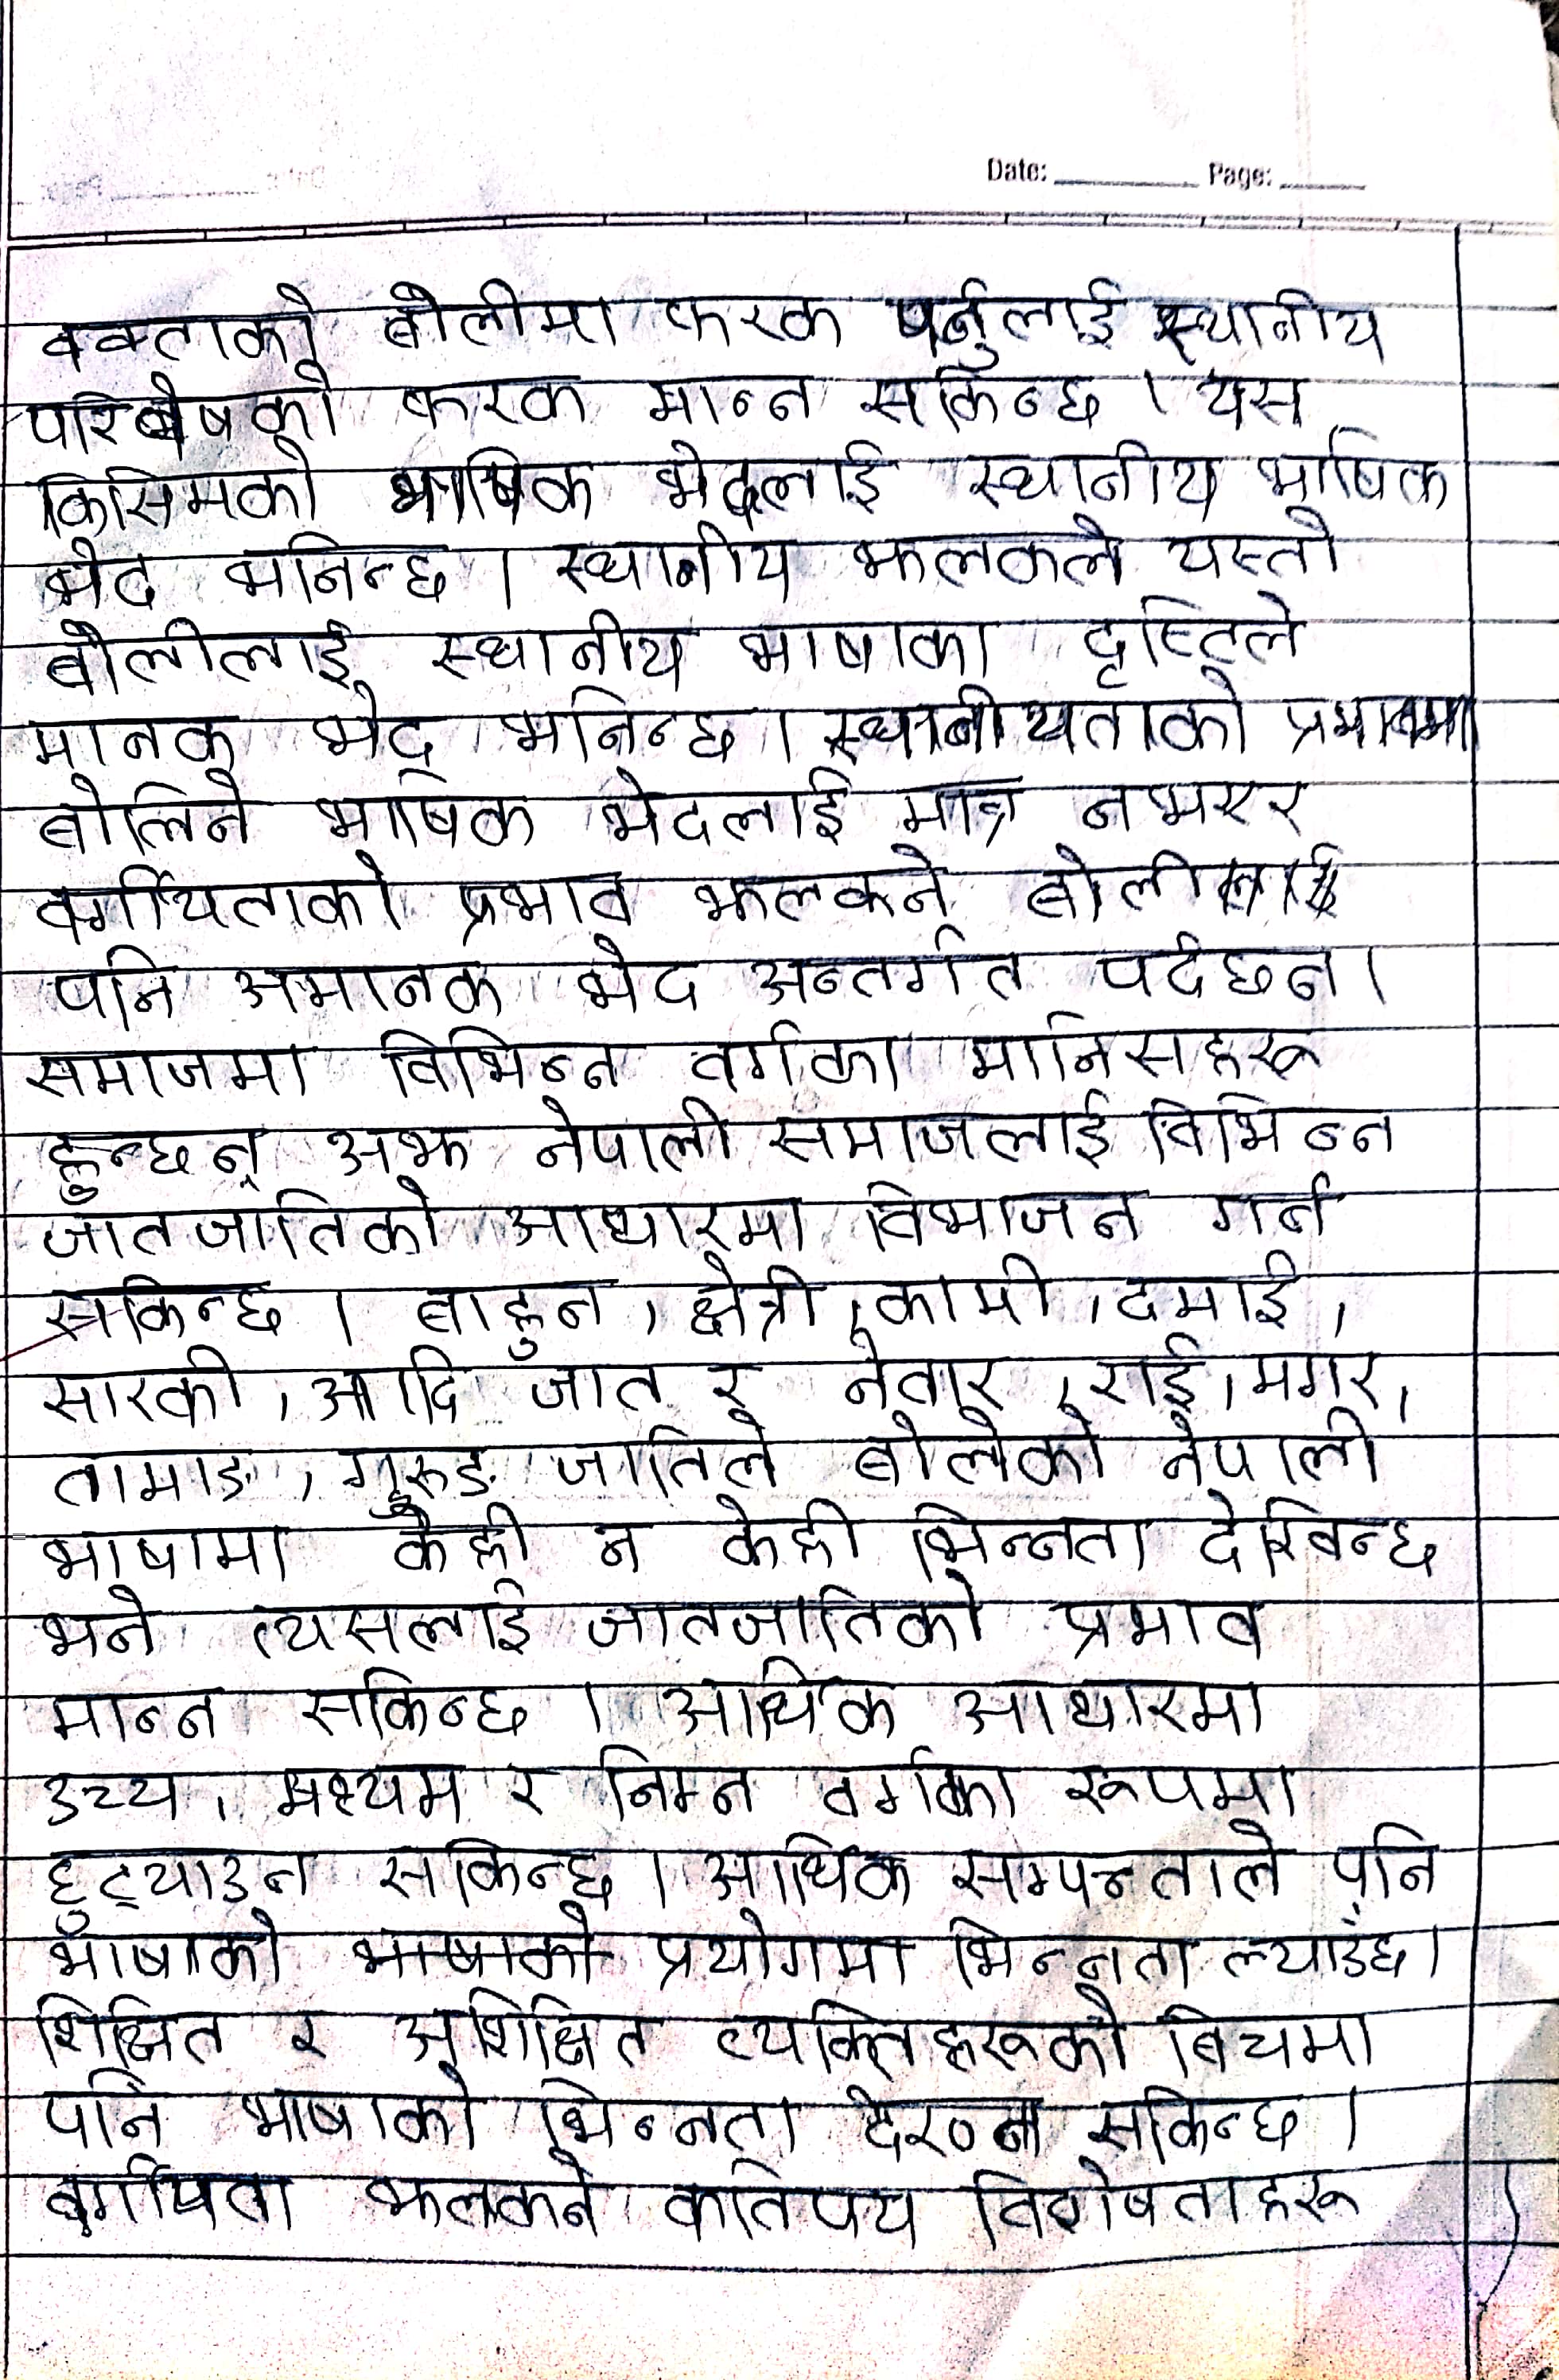 Date: Page:
वक्ताको बोलीमा फरक पर्नुलाई स्थानीय
परिबेषको फरक मान्न सकिन्छ । यस
किसिमको भाषिक भेदलाई स्थानीय भाषिक
भेद भनिन्छ । स्थानीय झलकले यस्तो
बोलीलाई स्थानीय भाषाका दृष्टिले
मानक भेद भनिन्छ । स्थानीयताको प्रभावमा
बोलिने भाषिक भेदलाई मात्र नभएर
वर्गीयताको प्रभाव झल्कने बोली
पनि अमानक भेद अन्तर्गत पर्दछन ।
समाजमा विभिन्न वर्गका मानिसहरू
हुन्छन् अझ नेपाली समाजलाई विभिन्न
जातजातिको आधारमा विभाजन गर्न
सकिन्छ । बाहुन, क्षेत्री, कामी, दमाई,
सारकी, आदि जात र नेवार, राई, मगर,
तामाङ, गुरुङ जातिले बोलेको नेपाली
भाषामा केही न केही भिन्नता देखिन्छ
भने त्यसलाई जातजातिको प्रभाव
मान्न सकिन्छ । आर्थिक आधारमा
उच्च, मध्यम र निम्न वर्गका रूपमा
छुट्याउन सकिन्छ । आर्थिक सम्पन्नताले पनि
भाषाको भाषाको प्रयोगमा भिन्नता ल्याउँछ ।
शिक्षित र अशिक्षित व्यक्तिहरूको बिचमा
पनि भाषाको भिन्नता देख्न सकिन्छ ।
वर्गीयता झल्कने कतिपय विशेषताहरू